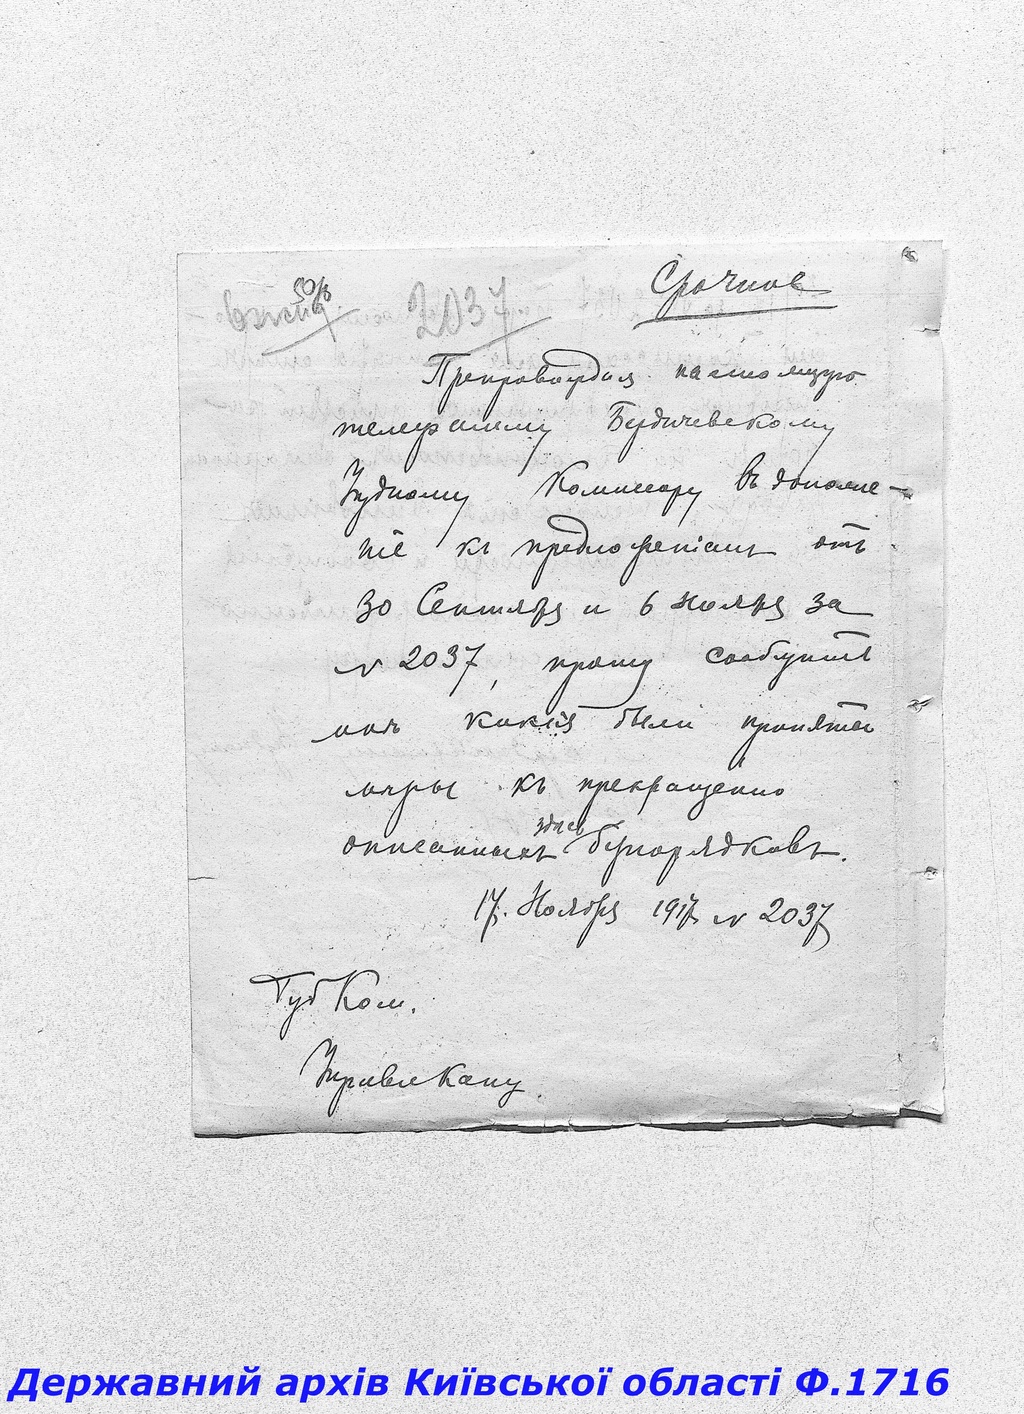 Срочное
2037
Препровождая настоящую
телеграмму Бердичевскому
Уездному Комиссару въ дополне-
ніе къ предложеніямъ отъ
30 Сентября и 6 Ноября за
№ 2037, прошу сообщить
мнѣ какія были приняты
мѣры къ прекращенію
описанныхъ здѣсь безпорядковъ.
17 Ноября 1917 № 2037
ГубКом.
Державний архів Київської області Ф.1716